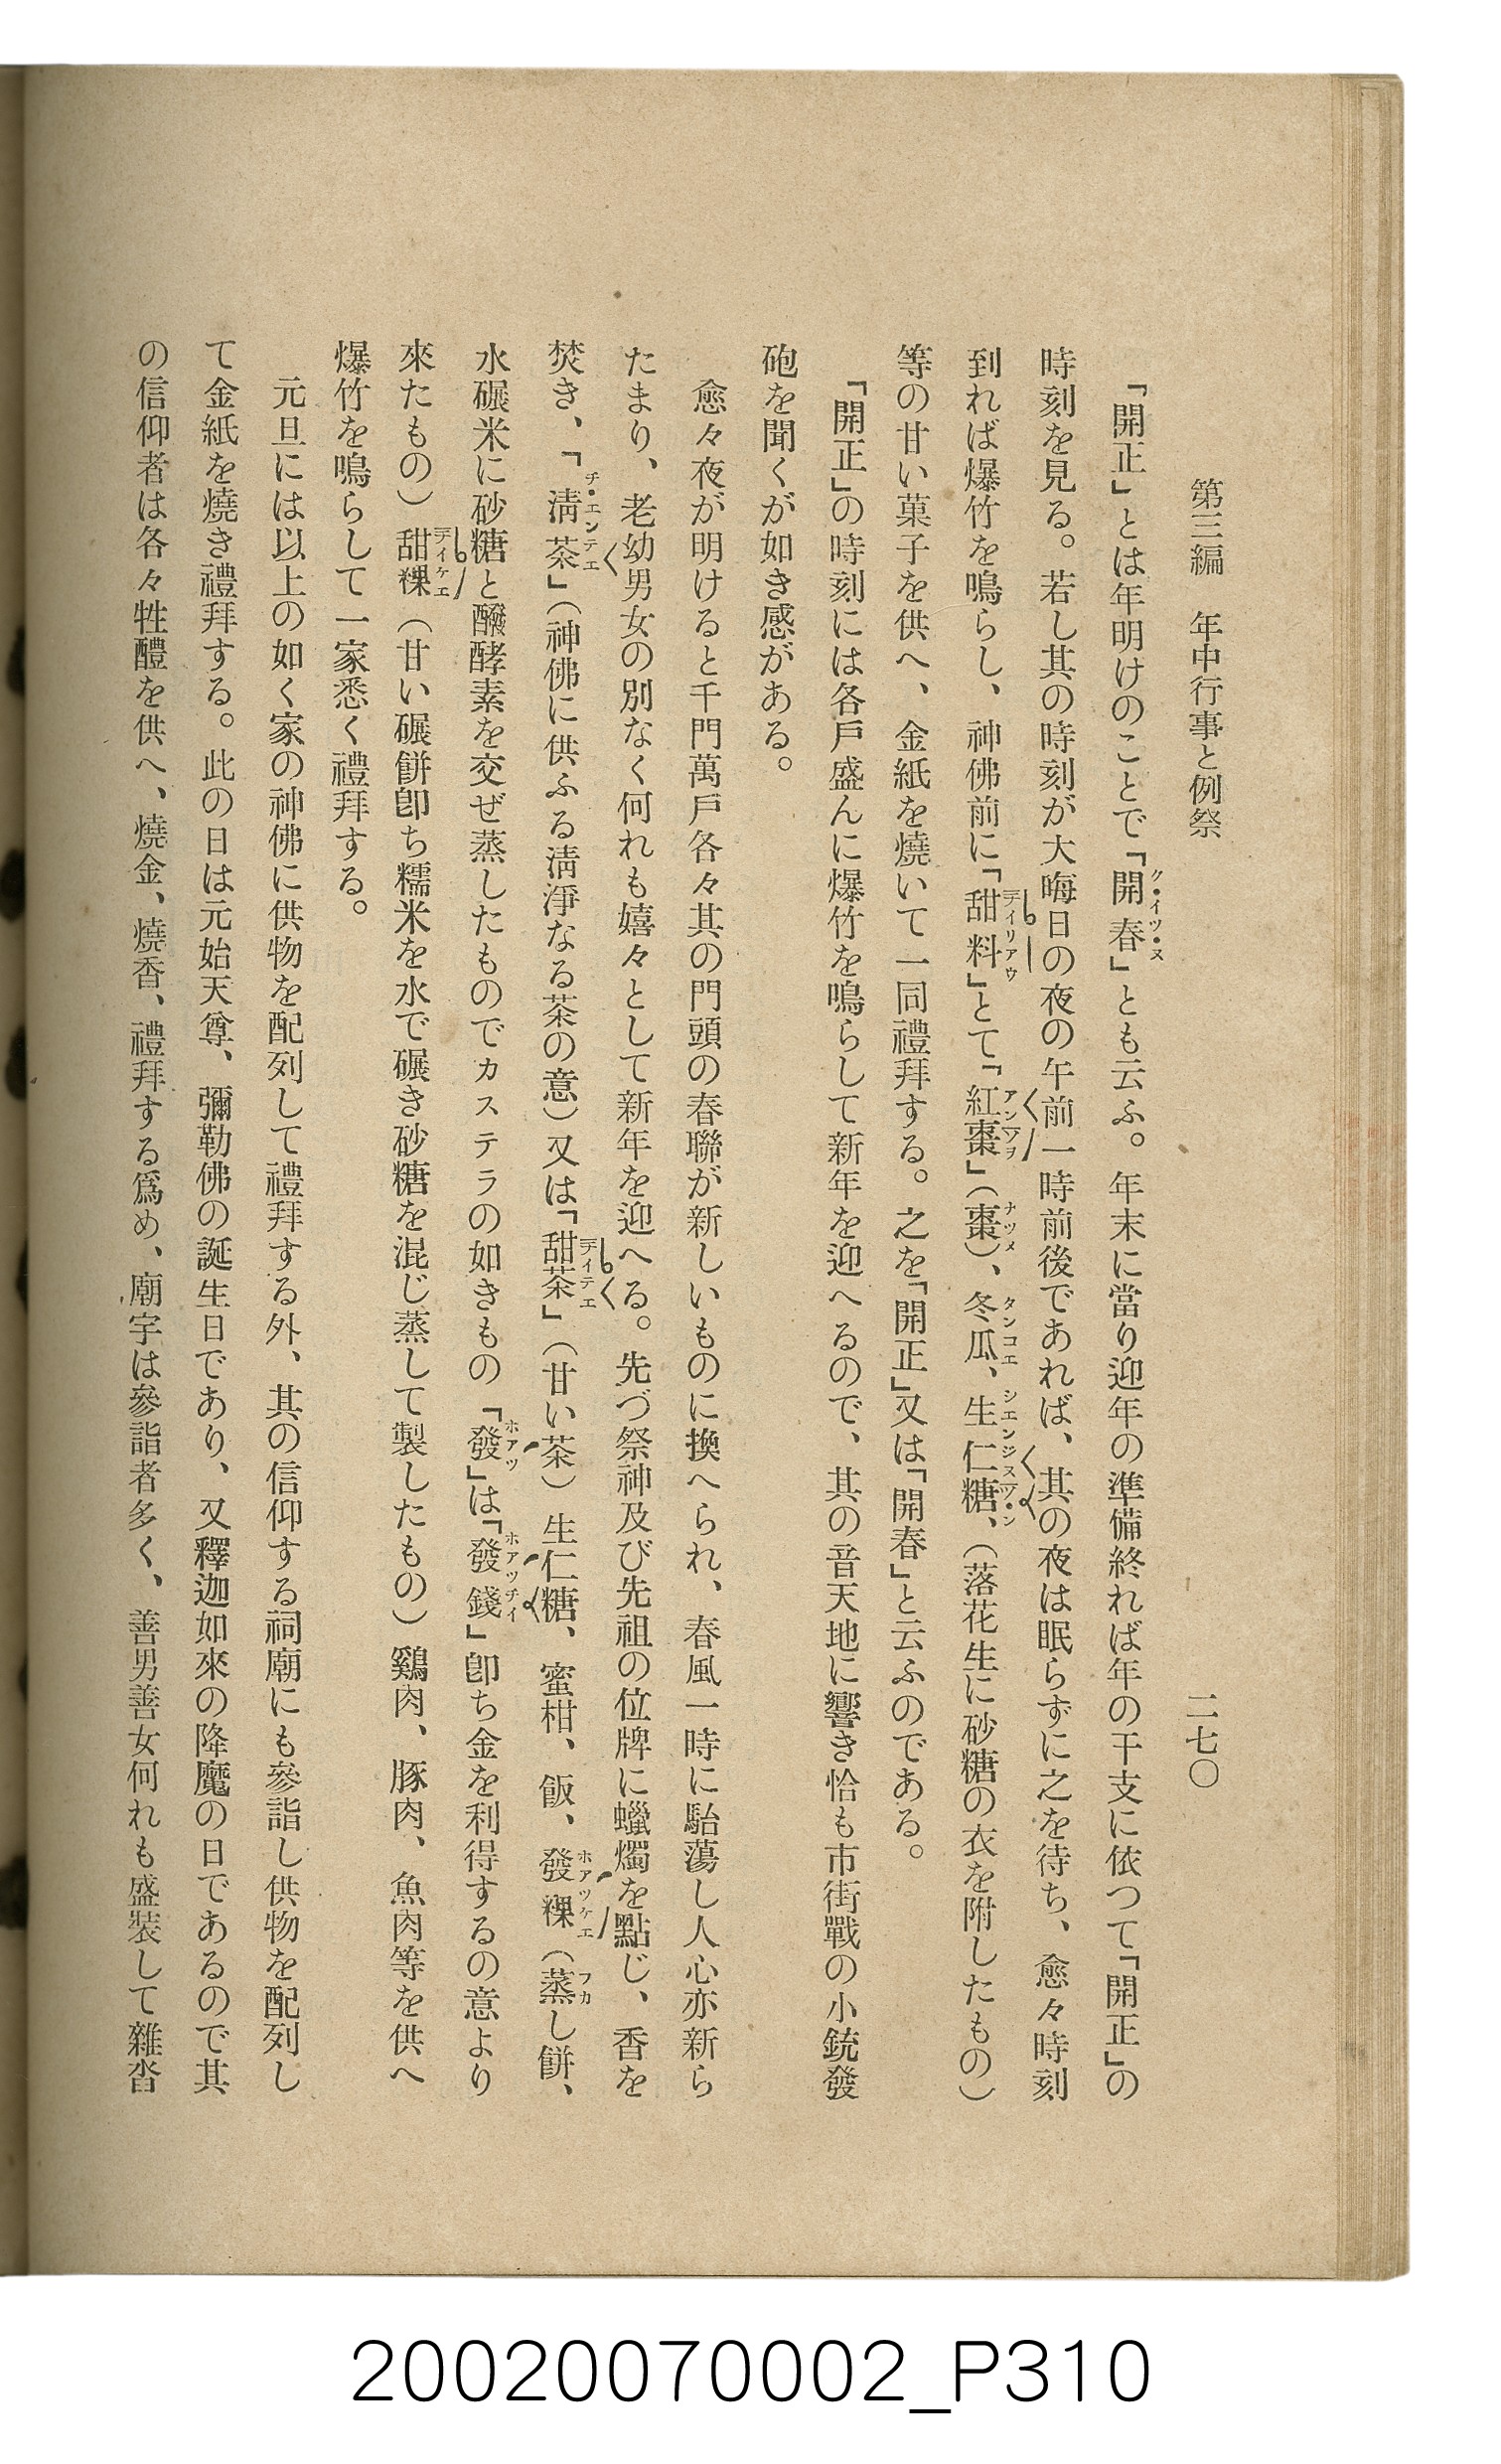 第三編　年中行事と例祭　二七〇
「開正」とは年明けのことで「開春」とも云ふ。年末に當り迎年の準備終れば年の干支に依つて「開正」の
時刻を見る。若し其の時刻が大晦日の夜の午前一時前後であれば、其の夜は眠らずに之を待ち、愈々時刻
到れば爆竹を鳴らし、神佛前に「甜料」とて「紅棗」（棗）、冬瓜、生仁糖、（落花生に砂糖の衣を附したもの）
等の甘い菓子を供へ、金紙を燒いて一同禮拜する。之を「開正」又は「開春」と云ふのである。
「開正」の時刻には各戶盛んに爆竹を鳴らして新年を迎へるので、其の音天地に響き恰も市街戰の小銃發
砲を聞くが如き感がある。
愈々夜が明けると千門萬戶各々其の門頭の春聯が新しいものに換へられ、春風一時に駘蕩し人心亦新ら
たまり、老幼男女の別なく何れも嬉々として新年を迎へる。先づ祭神及び先祖の位牌に蠟燭を點じ、香を
焚き、「淸茶」（神佛に供ふる淸淨なる茶の意）又は「甜茶」（甘い茶）生仁糖、蜜柑、飯、發粿（蒸し餠、
水碾米に砂糖と醱酵素を交ぜ蒸したものでカステラの如きもの「發」は「發錢」卽ち金を利得するの意より
來たもの）甜粿（甘い碾餠卽ち糯米を水で碾き砂糖を混じ蒸して製したもの）鷄肉、豚肉、魚肉等を供へ
爆竹を鳴らして一家悉く禮拜する。
元旦には以上の如く家の神佛に供物を配列して禮拜する外、其の信仰する祠廟にも參詣し供物を配列し
て金紙を燒き禮拜する。此の日は元始天尊、彌勒佛の誕生日であり、又釋迦如來の降魔の日であるので其
の信仰者は各々牲醴を供へ、燒金、燒香、禮拜する爲め、廟宇は參詣者多く、善男善女何れも盛裝して雜沓
20020070002_P310